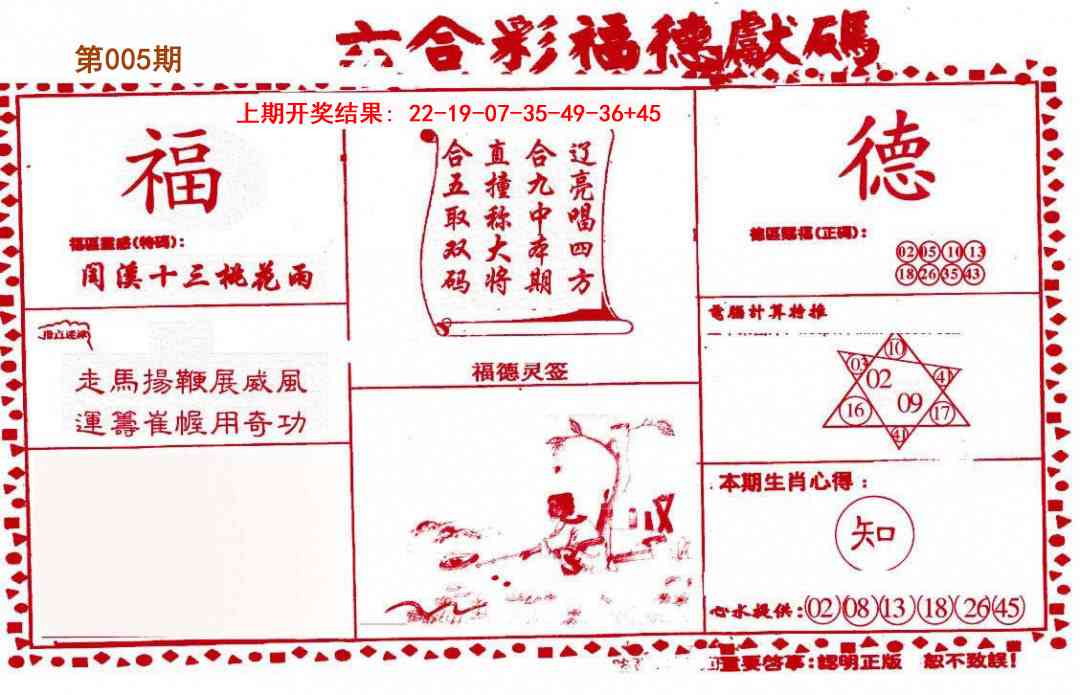 六合彩福德獻碼
第005期
上期开奖结果：22-19-07-35-49-36+45
福
福區靈感(特碼)：
閏溪十三桃花雨
走馬揚鞭展威風
運籌崔幄用奇功
辽亮唱四方
合九中本期
直撞称大将
合五取双码
福德灵签
德
德區賜福(正碼)：
02 05 10 13
18 26 35 43
電腦計算特推
10
03 02 41
16 09 17
41
本期生肖心得：
知
心水提供：(02)(08)(13)(18)(26)(45)
重要啓事：認明正版 恕不致誤！